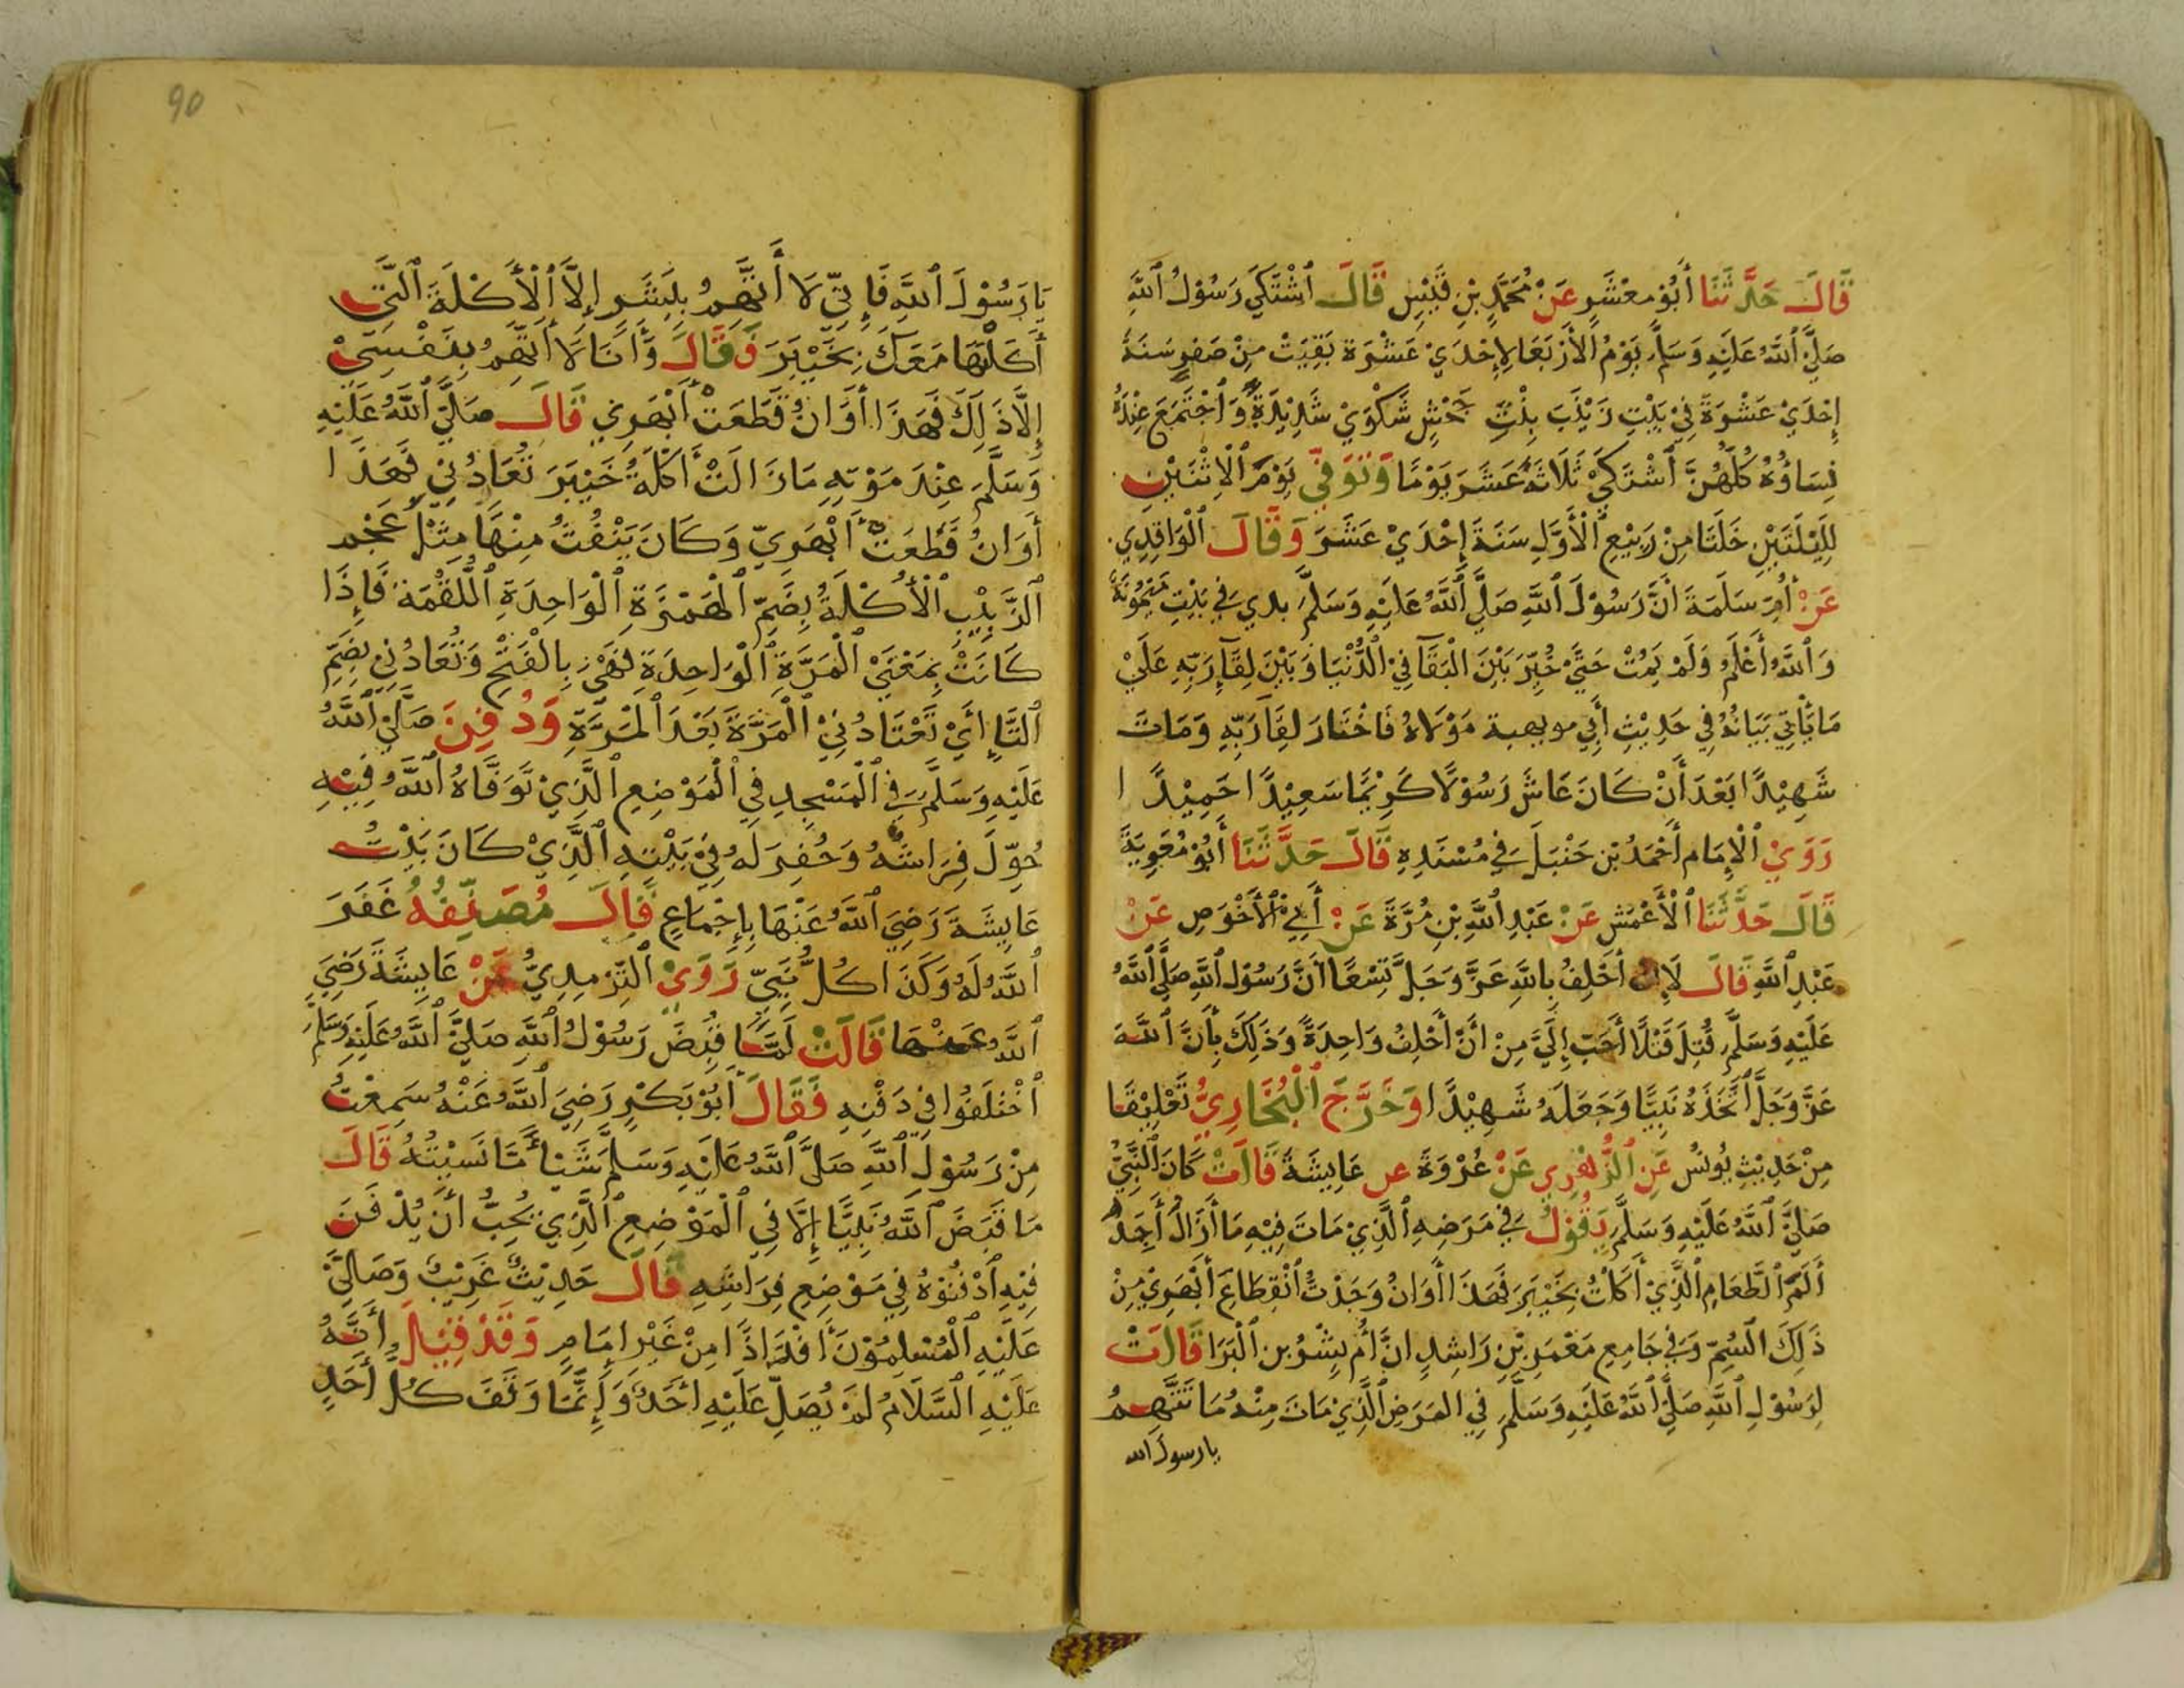 قَالَ حَدَّثَنَا أَبُو مَعْشَرٍ عَنْ مُحَمَّدِ بْنِ قَيْسٍ قَالَ ٱشْتَكَي رَسُوْلُ ٱللَّهِ
صَلَّيَ ٱللَّهُ عَلَيْهِ وَسَلَّمَ يَوْمُ الْأَرْبَعَا لِإِحْدَيْ عَشْرَةَ بَقِيَتْ مِنْ صَفَرٍ سَنَةَ
إِحْدَيْ عَشْرَةَ فِيْ بَيْتِ زَيْنَبَ بِنْتِ جَحْشٍ شَكْوَيْ شَدِيْدَةً وَٱجْتَمَعَ عِنْدَهُ
نِسَاؤُهُ كُلُّهُنَّ ٱشْتَكَيْ ثَلَاثَةَ عَشَرَ يَوْمًا وَتُوَفِّيَ يَوْمَ ٱلْاِثْنَيْنِ
لِلَيْلَتَيْنِ خَلَتَا مِنْ رَبِيْعِ ٱلْأَوَّلِ سَنَةَ إِحْدَيْ عَشَرَ وَقَالَ ٱلْوَاقِدِي
عَنْ أُمِّ سَلَمَةَ أَنَّ رَسُوْلَ ٱللَّهِ صَلَّيَ ٱللَّهُ عَلَيْهِ وَسَلَّمَ بدي فِي بَيْتِ مَيْمُوْنَةَ
وَٱللَّهُ أَعْلَمُ وَلَمْ يَمُتْ حَتَّيْ خُيِّرَ بَيْنَ الْبَقَآ فِيْ ٱلدُّنْيَا وَبَيْنَ لِقَآءِ رَبِّهِ عَلَيْ
مَا يَأْتِيْ بَيَانُهُ فِي حَدِيْثِ أَبِي مويهبة مَوْلَاهُ فَاخْتَارَ لِقَآ رَبِّهِ وَمَاتَ
شَهِيْدًا بَعْدَ أَنْ كَانَ عَاشَ رَسُوْلًا كَرِيْمًا سَعِيْدًا حَمِيْدًا
رَوَيْ ٱلْإِمَام أَحْمَدُ بْن حَنْبَلَ فِي مُسْنَدِهِ قَالَ حَدَّثَنَا أَبُوْ مُعَوِيَةَ
قَالَ حَدَّثَنَا ٱلْأَعْمَش عَنْ عَبْدِ ٱللَّهِ بْنِ مُرَّةَ عَنْ أَبِيْ ٱلْأَحْوَصِ عَنْ
عَبْدِ ٱللَّهِ قَالَ لَإِنْ أَحْلِفُ بِاللَّهِ عَزَّ وَجَلَّ تِسْعًا أَنَّ رَسُوْلَ ٱللَّهِ صَلَّيَ ٱللَّهُ
عَلَيْهِ وَسَلَّمَ قُتِلَ قَتْلًا أَحَبّ إِلَيَّ مِنْ أَنْ أَحْلِفُ وَاحِدَةً وَذَلِكَ بِأَنَّ ٱللَّهَ
عَزَّ وَجَلَّ ٱتَّخَذَهُ نَبِيًّا وَجَعَلَهُ شَهِيْدًا وَخَرَّجَ ٱلْبُخَارِيُّ تَعْلِيْقًا
مِنْ حَدِيْثِ يُونُس عَنِ ٱلزُّهْرِي عَنْ عُرْوَةَ عن عَايِشَةَ قَالَتْ كَانَ ٱلنَّبِيُّ
صَلَّيَ ٱللَّهُ عَلَيْهِ وَسَلَّمَ يَقُوْلُ فِي مَرَضِهِ ٱلَّذِيْ مَاتَ فِيْهِ مَا أَزَالُ أَجِدُ
أَلَمَ ٱلطَّعَامِ ٱلَّذِيْ أَكَلْتُ بِخَيْبَرَ فَهَذَا أَوَانُ وَجَدْتُ ٱنْقِطَاعَ أَبْهَرِيْ مِنْ
ذَلِكَ ٱلسُّمِّ وَفِي جَامِعِ مَعْمَرِ بْنِ رَاشِدٍ انَّ أُمَّ بِشْرُ بن ٱلْبَرَا قَالَتْ
لِرَسُوْلِ ٱللَّهِ صَلَّيَ ٱللَّهُ عَلَيْهِ وَسَلَّمَ فِي المَرَضِ ٱلَّذِيْ مَاتَ مِنْهُ مَا تَتَّهِمُ
يا رسول الله
90
يَا رَسُوْلَ ٱللَّهِ فَإِنِّيْ لَا أَتَّهِمُ بِبِشْرٍ إِلَّا ٱلْأَكْلَةَ ٱلَّتِي
أَكَلْتُهَا مَعَكَ بِخَيْبَرَ فَقَالَ وَأَنَا لَا أَتَّهِمُ بِنَفْسِيْ
إِلَّا ذَلِكَ فَهَذَا أَوَانُ قَطَعَتْ أَبْهَرِي قَالَ صَلَّيَ ٱللَّهُ عَلَيْهِ
وَسَلَّمَ عِنْدَ مَوْتِهِ مَا زَالَتْ أَكْلَةُ خَيْبَرَ تُعَادُنِيْ فَهَذَا
أَوَانُ قَطَعَتْ أَبْهَرِيّ وَكَانَ يَنْفُثُ مِنْهَا مِثْلَ عَجْمِ
ٱلزَّبِيْبِ ٱلْأُكْلَةُ بِضَمِّ ٱلْهَمْزَةِ ٱلْوَاحِدَةِ ٱللُّقْمَةُ فَإِذَا
كَانَتْ بِمَعْنَيْ ٱلْمَرَّةِ ٱلْوَاحِدَةِ فَهْيَ بِالْفَتْحِ وَتُعَادُنِيْ بِضَمِّ
ٱلتَّاءِ أَيْ تَعْتَادُنِيْ ٱلْمَرَّةَ بَعْدَ ٱلْمَرَّةِ وَدُفِنَ صَلَّيَ ٱللَّهُ
عَلَيْهِ وَسَلَّمَ فِي ٱلْمَسْجِدِ فِي ٱلْمَوْضِعِ ٱلَّذِيْ تَوَفَّاهُ ٱللَّهُ فِيْهِ
حُوِّلَ فِرَاشُهُ وَحُفِرَ لَهُ فِيْ بَيْتِهِ ٱلَّذِيْ كَانَ بَيْتُ
عَايِشَةَ رَضِيَ ٱللَّهُ عَنْهَا بِإِجْمَاعٍ قَالَ مُصَنِّفُهُ غَفَرَ
ٱللَّهُ لَهُ وَكَذَا كُلُّ نَبِيّ رَوَيْ ٱلتِّرْمِدِيُّ عَنْ عَايِشَةَ رَضِيَ
ٱللَّهُ عَنْهَا قَالَتْ لَمَّا قُبِضَ رَسُوْلُ ٱللَّهِ صَلَّيَ ٱللَّهُ عَلَيْهِ وَسَلَّمَ
ٱخْتَلَفُوا فِيْ دَفْنِهِ فَقَالَ أَبُوْ بَكْرٍ رَضِيَ ٱللَّهُ عَنْهُ سَمِعْتُ
مِنْ رَسُوْلِ ٱللَّهِ صَلَّيَ ٱللَّهُ عَلَيْهِ وَسَلَّمَ شَيْئًا مَّا نَسِيْتُهُ قَالَ
مَا قَبَضَ ٱللَّهُ نَبِيًّا إِلَّا فِي ٱلْمَوْضِعِ ٱلَّذِيْ يُحِبُّ أَنْ يُدْفَنَ
فِيْهِ ٱدْفُنُوْهُ فِي مَوْضِعِ فِرَاشِهِ قَالَ حَدِيْثٌ غَرِيْبٌ وَصَلِّيَ
عَلَيْهِ ٱلْمُسْلِمُوْنَ أَفْذَاذًا مِنْ غَيْرِ إِمَامٍ وَقَدْ قِيْلَ أَنَّهُ
عَلَيْهِ السَّلَامُ لَمْ يُصَلِّ عَلَيْهِ أَحَدٌ وَإِنَّمَا وَقَفَ كُلُّ أَحَدٍ